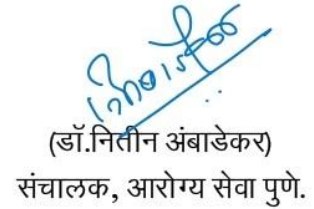 (डॉ.नितीन अंबाडेकर)
संचालक, आरोग्य सेवा पुणे.